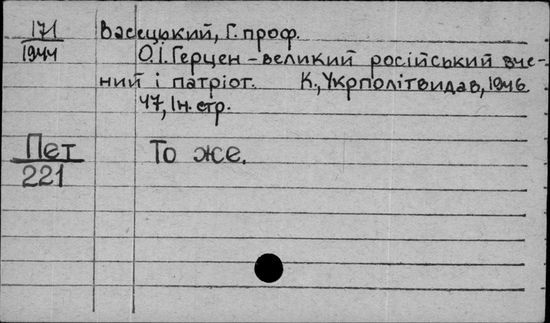 171
1944
Васецький, Г. проф.
О.І. Герцен - великий російський вче-
ний і патріот. К., Укрполітвидав, 1946
47, Ін. стр.
Пет
221
То же.